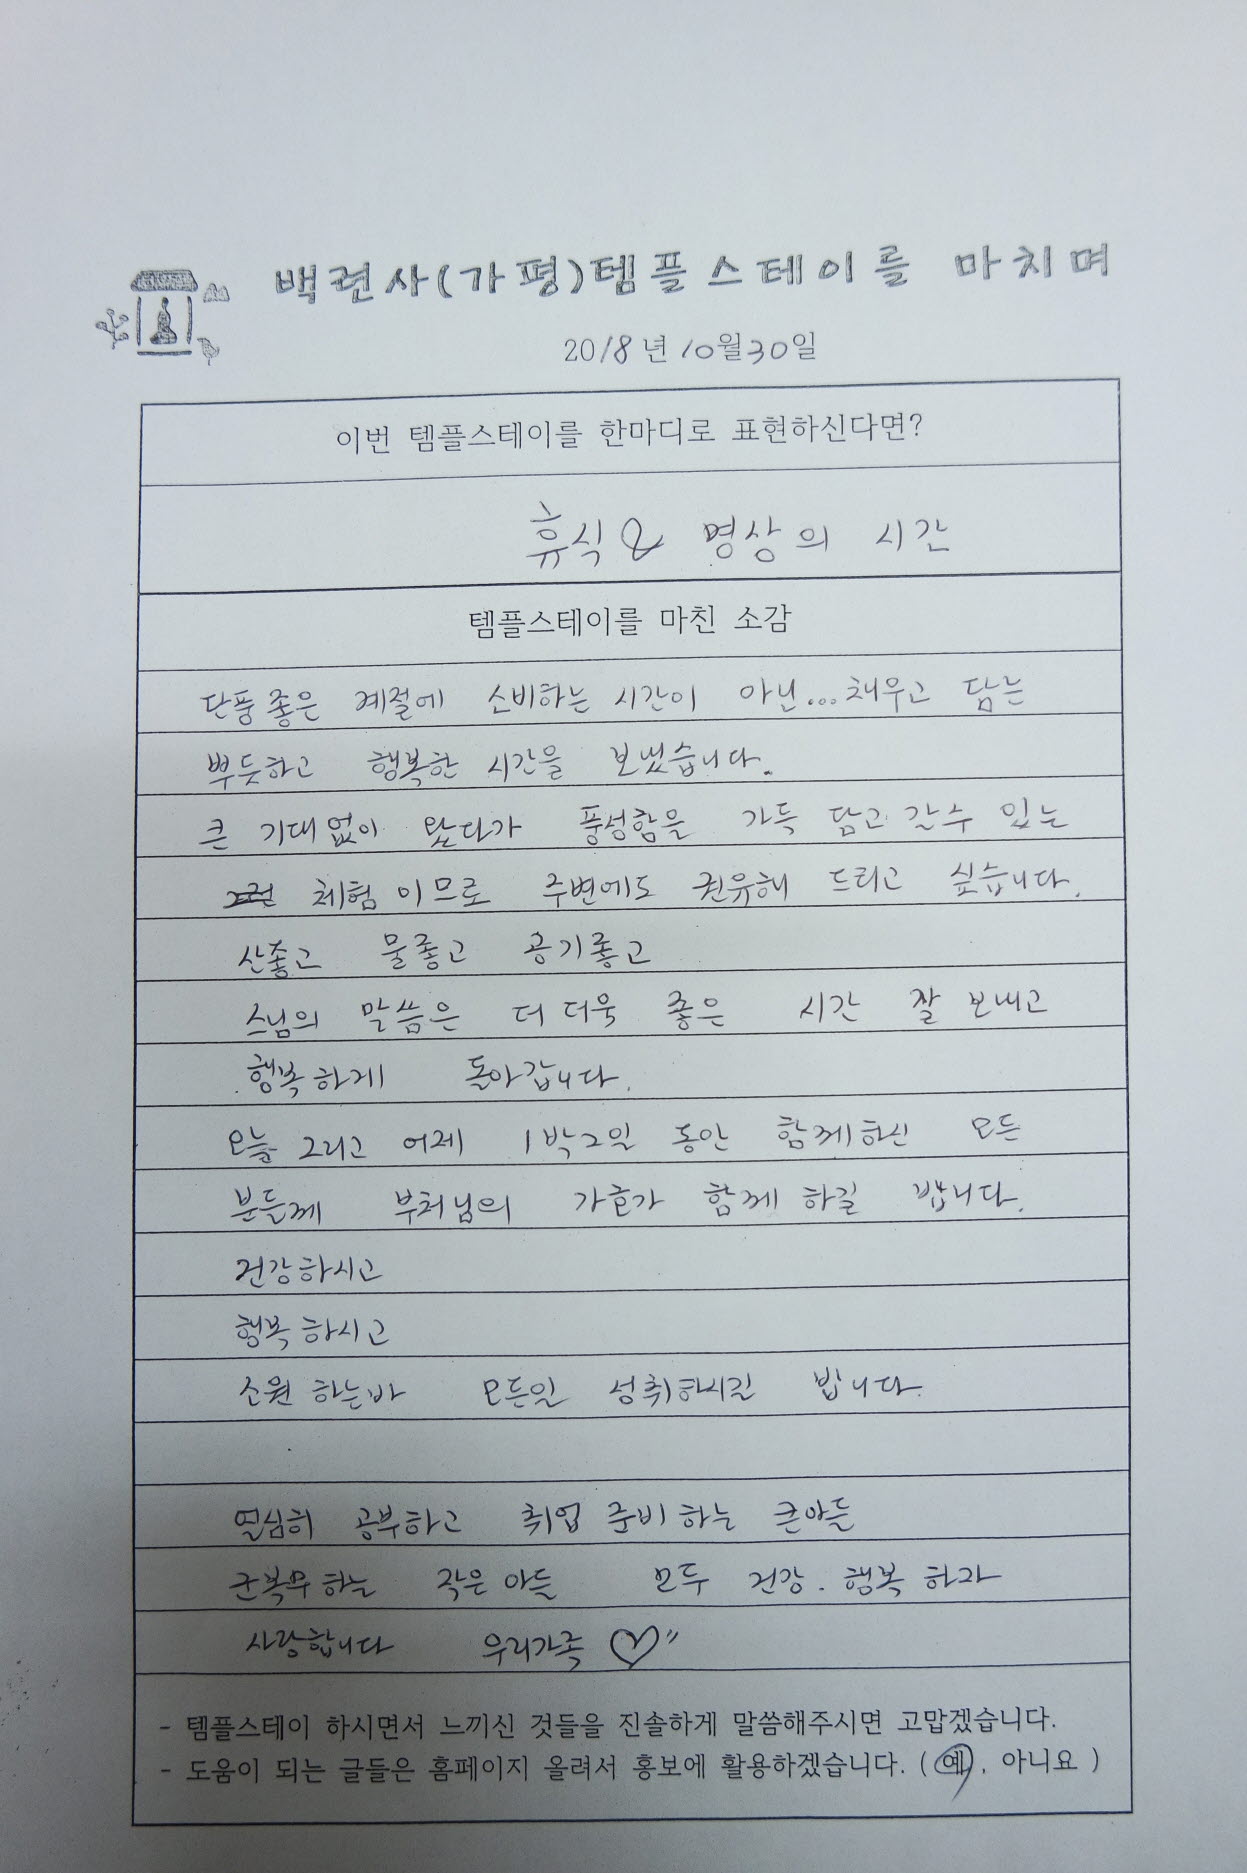 백련사(가평)템플스테이를 마치며
2018년 10월30일
이번 템플스테이를 한마디로 표현하신다면?
휴식 & 명상의 시간
템플스테이를 마친 소감
단풍좋은 계절에 소비하는 시간이 아닌...채우고 담는
뿌듯하고 행복한 시간을 보냈습니다.
큰 기대없이 왔다가 풍성함을 가득 담고 갈수 있는
체험이므로 주변에도 권유해 드리고 싶습니다.
산좋고 물좋고 공기좋고
스님의 말씀은 더 더욱 좋은 시간 잘 보내고
행복하게 돌아갑니다.
오늘 그리고 어제 1박2일 동안 함께하신 모든
분들께 부처님의 가호가 함께 하길 밥니다.
건강하시고
행복하시고
소원 하는바 모든일 성취하시길 밥니다.
열심히 공부하고 취업 준비 하는 큰아들
군복무하는 작은 아들 모두 건강. 행복 하자
사랑합니다 우리가족 ♡"
- 템플스테이 하시면서 느끼신 것들을 진솔하게 말씀해주시면 고맙겠습니다.
- 도움이 되는 글들은 홈페이지 올려서 홍보에 활용하겠습니다. ( 예, 아니요 )